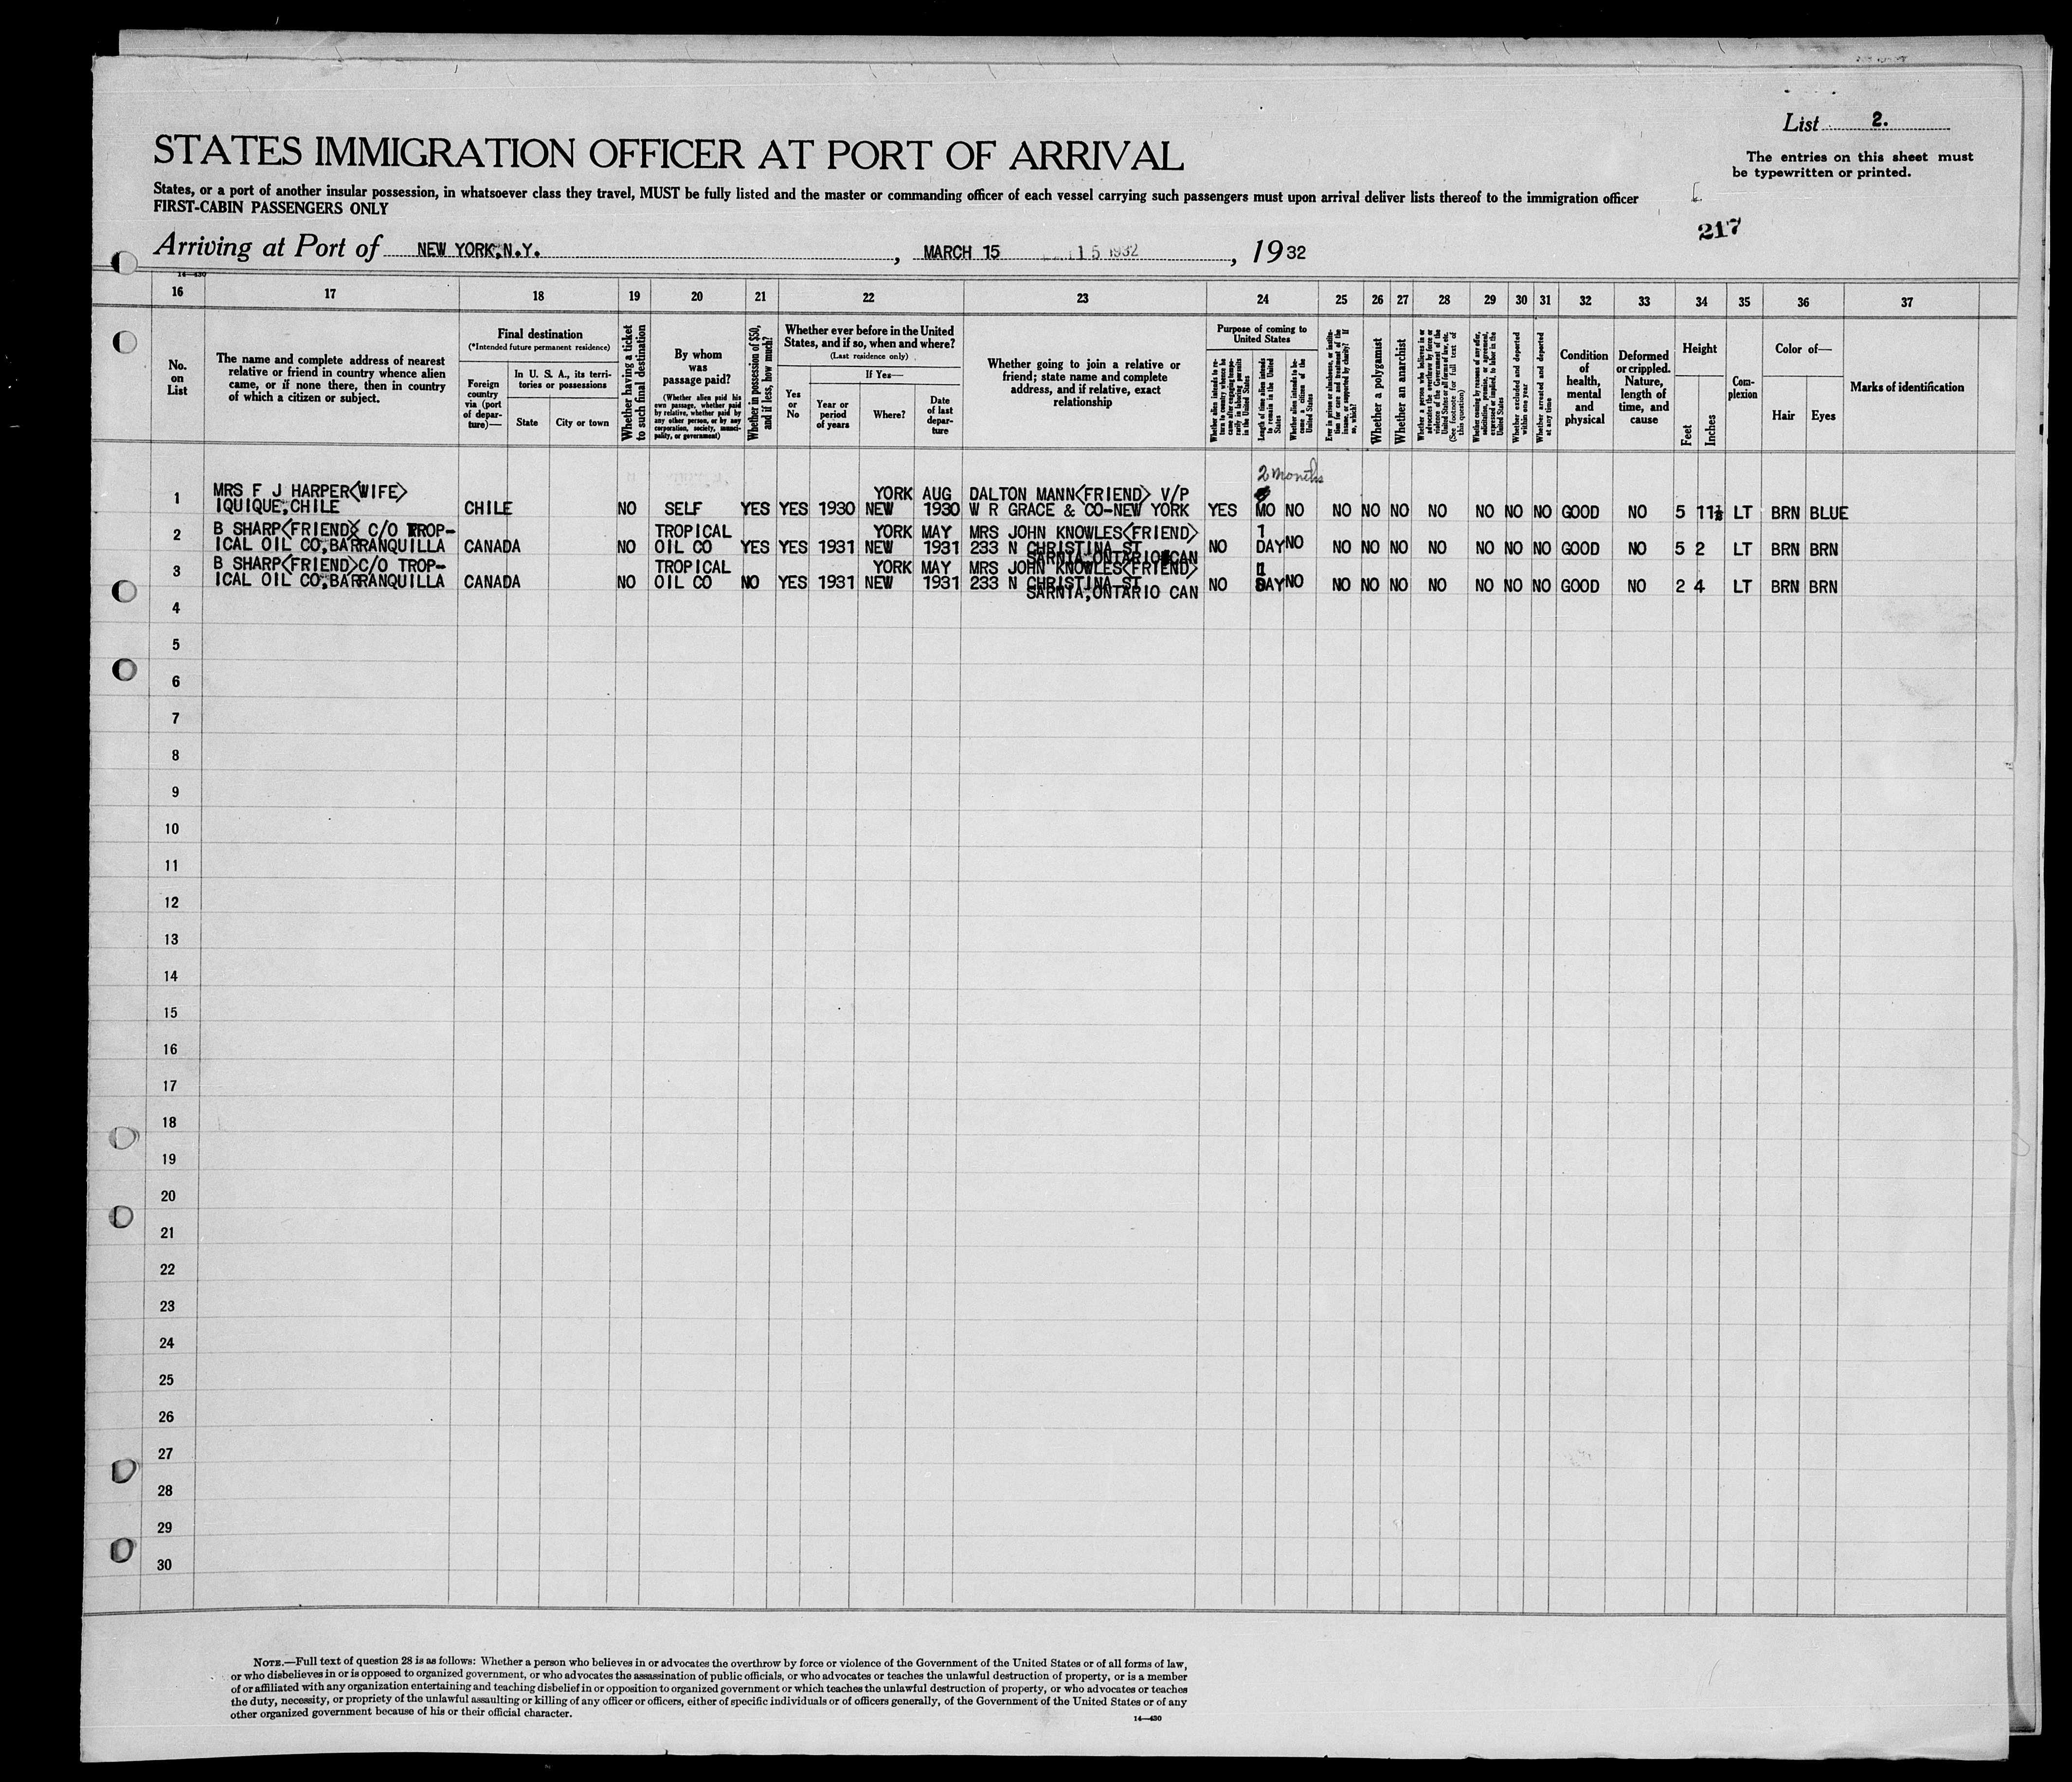 List 2.
The entries on this sheet must
be typewritten or printed.
STATES IMMIGRATION OFFICER AT PORT OF ARRIVAL
States, or a port of another insular possession, in whatsoever class they travel, MUST be fully listed and the master or commanding officer of each vessel carrying such passengers must upon arrival deliver lists thereof to the immigration officer
FIRST-CABIN PASSENGERS ONLY
217
Arriving at Port of NEW YORK,N.Y. , MARCH 15 15 1932 , 1932
14—430
16 17 18 19 20 21 22 23 24 25 26 27 28 29 30 31 32 33 34 35 36 37
No.
on
List
The name and complete address of nearest
relative or friend in country whence alien
came, or if none there, then in country
of which a citizen or subject.
Final destination
(*Intended future permanent residence)
Foreign
country
via (port
of depar-
ture)—
In U. S. A., its terri-
tories or possessions
State
City or town
Whether having a ticket
to such final destination
By whom
was
passage paid?
(Whether alien paid his
own passage, whether paid
by relative, whether paid by
any other person, or by any
corporation, society, munici-
pality, or government)
Whether in possession of $50,
and if less, how much?
Whether ever before in the United
States, and if so, when and where?
(Last residence only)
Yes
or
No
If Yes—
Year or
period
of years
Where?
Date
of last
depar-
ture
Whether going to join a relative or
friend; state name and complete
address, and if relative, exact
relationship
Purpose of coming to
United States
Whether alien intends to re-
turn to country whence he
came after engaging tempo-
rarily in laboring pursuits
in the United States
Length of time alien intends
to remain in the United
States
Whether alien intends to be-
come a citizen of the
United States
Ever in prison or almshouse, or institu-
tion for care and treatment of the
insane, or supported by charity? If
so, which?
Whether a polygamist
Whether an anarchist
Whether a person who believes in or
advocates the overthrow by force or
violence of the Government of the
United States or all forms of law, etc.
(See footnote for full text of
this question)
Whether coming by reasons of any offer,
solicitation, promise, or agreement,
expressed or implied, to labor in the
United States
Whether excluded and deported
within one year
Whether arrested and deported
at any time
Condition
of
health,
mental
and
physical
Deformed
or crippled.
Nature,
length of
time, and
cause
Height
Feet
Inches
Com-
plexion
Color of—
Hair
Eyes
Marks of identification
2 months
MRS F J HARPER<WIFE> YORK AUG DALTON MANN<FRIEND> V/P
1 IQUIQUE,CHILE CHILE NO SELF YES YES 1930 NEW 1930 W R GRACE & CO-NEW YORK YES MO NO NO NO NO NO NO NO NO GOOD NO 5 11½ LT BRN BLUE
B SHARP<FRIEND> C/O TROP- TROPICAL YORK MAY MRS JOHN KNOWLES<FRIEND> 1
2 ICAL OIL CO,BARRANQUILLA CANADA NO OIL CO YES YES 1931 NEW 1931 233 N CHRISTINA ST NO DAY NO NO NO NO NO NO NO NO GOOD NO 5 2 LT BRN BRN
SARNIA,ONTARIO CAN
B SHARP<FRIEND>C/O TROP- TROPICAL YORK MAY MRS JOHN KNOWLES<FRIEND> 1
3 ICAL OIL CO,BARRANQUILLA CANADA NO OIL CO NO YES 1931 NEW 1931 233 N CHRISTINA ST NO DAY NO NO NO NO NO NO NO NO GOOD NO 2 4 LT BRN BRN
SARNIA,ONTARIO CAN
4
5
6
7
8
9
10
11
12
13
14
15
16
17
18
19
20
21
22
23
24
25
26
27
28
29
30
NOTE.—Full text of question 28 is as follows: Whether a person who believes in or advocates the overthrow by force or violence of the Government of the United States or of all forms of law,
or who disbelieves in or is opposed to organized government, or who advocates the assassination of public officials, or who advocates or teaches the unlawful destruction of property, or is a member
of or affiliated with any organization entertaining and teaching disbelief in or opposition to organized government or which teaches the unlawful destruction of property, or who advocates or teaches
the duty, necessity, or propriety of the unlawful assaulting or killing of any officer or officers, either of specific individuals or of officers generally, of the Government of the United States or of any
other organized government because of his or their official character.
14—430